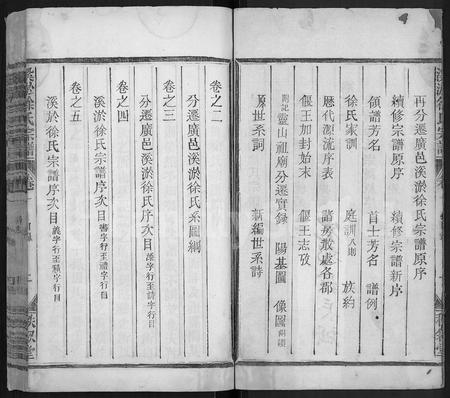 再分遷廣邑溪淤徐氏宗譜原序
續修宗譜原序 續修宗譜新序
領譜芳名 首士芳名 譜例
徐氏家訓 庭訓八則 族約
歷代源流序表 譜房散處各郡
偃王加封始末 偃王志攷
附記靈山祖廟分遷實錄 陽基圖 像圖
原世系詞 新編世系詩
卷之二
分遷廣邑溪淤徐氏系圖綱
卷之三
分遷廣邑溪淤徐氏序次目
卷之四
溪淤徐氏宗譜序次目
卷之五
溪於徐氏宗譜序次目
溪淤徐氏宗譜
卷